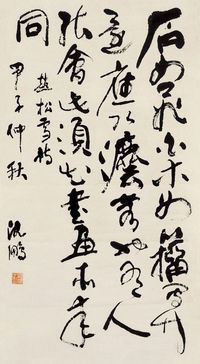 石如飛白木如籀寫竹
還應八法通若也有人
能會此須知書畫本來
同
趙松雪詩
甲子仲秋
沈鵬